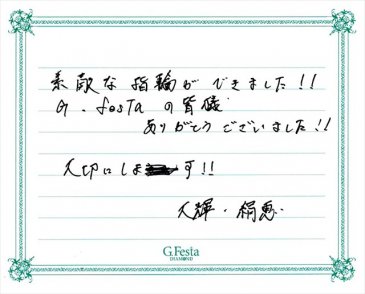 素敵な指輪ができました!!
G.festaの皆様
ありがとうございました!!
大切にします!!
大輝・絹恵
G.Festa
DIAMOND